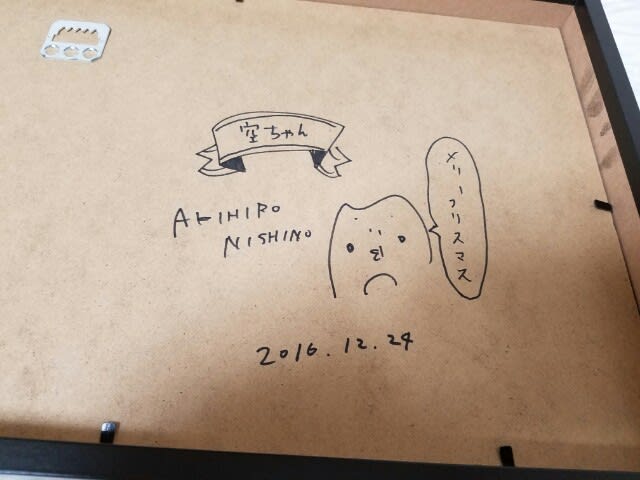 空ちゃん
AKIHIRO
NISHINO
メリークリスマス
2016.12.24